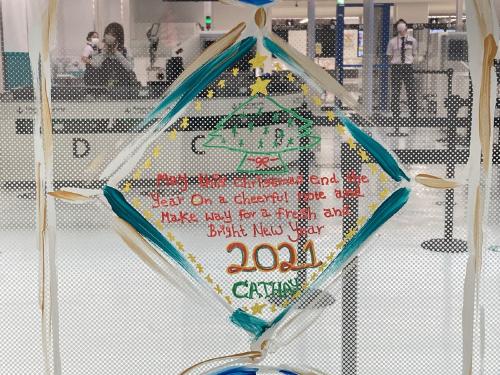 D C D
May this Christmas end the
Year On a cheerful note and
Make way for a fresh and
Bright New Year
2021
CATHAY